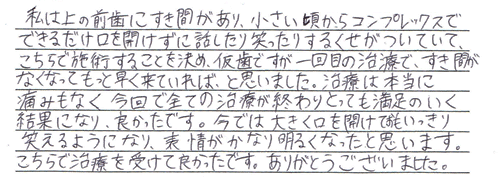 私は上の前歯にすき間があり、小さい頃からコンプレックスで
できるだけ口を開けずに話したり笑ったりするくせがついていて、
こちらで施術することを決め、仮歯ですが一回目の治療で、すき間が
なくなってもっと早く来ていれば、と思いました。治療は本当に
痛みもなく今回で全ての治療が終わりとっても満足のいく
結果になり、良かったです。今では大きく口を開けて思いっきり
笑えるようになり、表情がかなり明るくなったと思います。
こちらで治療を受けて良かったです。ありがとうございました。